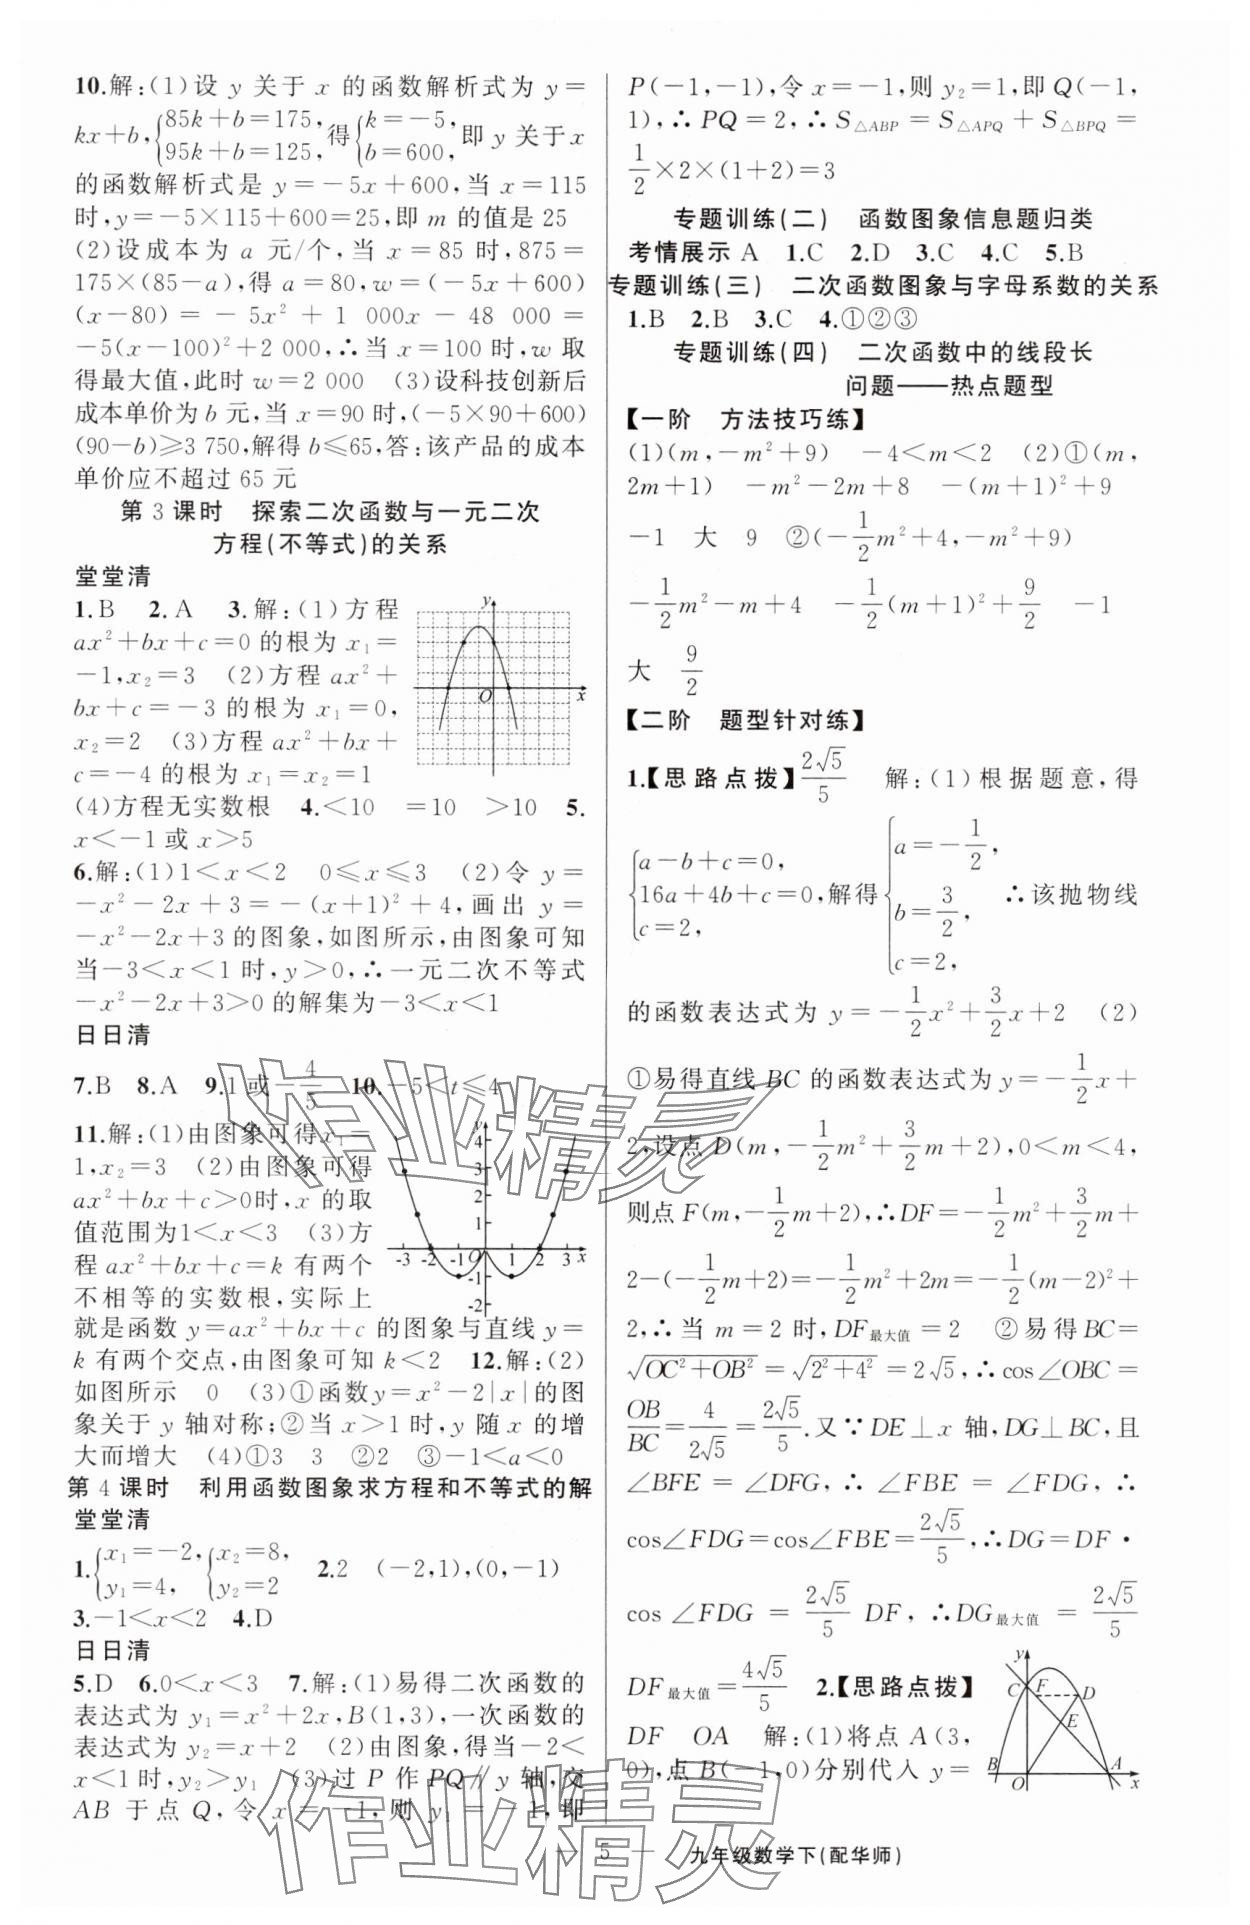 10.解:(1)设 y 关于 x 的函数解析式为 y=
kx+b,{85k+b=175, 95k+b=125, 得{k=-5, b=600, 即 y 关于 x
的函数解析式是 y=-5x+600,当 x=115
时,y=-5×115+600=25,即 m 的值是 25
(2)设成本为 a 元/个,当 x=85 时,875=
175×(85-a),得 a=80,w=(-5x+600)
(x-80)=-5x²+1 000x-48 000=
-5(x-100)²+2 000,∴当 x=100 时,w 取
得最大值,此时 w=2 000 (3)设科技创新后
成本单价为 b 元,当 x=90 时,(-5×90+600)
(90-b)≥3 750,解得 b≤65,答:该产品的成本
单价应不超过 65 元
第 3 课时 探索二次函数与一元二次
方程(不等式)的关系
堂堂清
1.B 2.A 3.解:(1)方程
ax²+bx+c=0 的根为 x₁=
-1,x₂=3 (2)方程 ax²+
bx+c=-3 的根为 x₁=0,
x₂=2 (3)方程 ax²+bx+
c=-4 的根为 x₁=x₂=1
y
O
x
(4)方程无实数根 4.<10 =10 >10 5.
x<-1 或 x>5
6.解:(1)1<x<2 0≤x≤3 (2)令 y=
-x²-2x+3=-(x+1)²+4,画出 y=
-x²-2x+3 的图象,如图所示,由图象可知
当-3<x<1 时,y>0,∴一元二次不等式
-x²-2x+3>0 的解集为-3<x<1
日日清
7.B 8.A 9.1 或-4/5 10.-5<t≤4
11.解:(1)由图象可得 x₁=
1,x₂=3 (2)由图象可得
ax²+bx+c>0时,x 的取
值范围为1<x<3 (3)方
程 ax²+bx+c=k 有两个
不相等的实数根,实际上
y
4
3
2
1
-3 -2 -1 O 1 2 3 x
-1
-2
就是函数 y=ax²+bx+c 的图象与直线 y=
k 有两个交点,由图象可知 k<2 12.解:(2)
如图所示 0 (3)①函数 y=x²-2|x|的图
象关于 y 轴对称;②当 x>1 时,y 随 x 的增
大而增大 (4)①3 3 ②2 ③-1<a<0
第 4 课时 利用函数图象求方程和不等式的解
堂堂清
1.{x₁=-2, y₁=4, {x₂=8, y₂=2 2.2 (-2,1),(0,-1)
3.-1<x<2 4.D
日日清
5.D 6.0<x<3 7.解:(1)易得二次函数的
表达式为 y₁=x²+2x,B(1,3),一次函数的
表达式为 y₂=x+2 (2)由图象,得当-2<
x<1时,y₂>y₁ (3)过 P 作 PQ∥y 轴,交
AB 于点 Q,令 x=-1,则 y₁=-1,即
P(-1,-1),令 x=-1,则 y₂=1,即 Q(-1,
1),∴PQ=2,∴S△ABP=S△APQ+S△BPQ=
1/2×2×(1+2)=3
专题训练(二) 函数图象信息题归类
考情展示 A 1.C 2.D 3.C 4.C 5.B
专题训练(三) 二次函数图象与字母系数的关系
1.B 2.B 3.C 4.①②③
专题训练(四) 二次函数中的线段长
问题——热点题型
【一阶 方法技巧练】
(1)(m,-m²+9) -4<m<2 (2)①(m,
2m+1) -m²-2m+8 -(m+1)²+9
-1 大 9 ②(-1/2m²+4,-m²+9)
-1/2m²-m+4 -1/2(m+1)²+9/2 -1
大 9/2
【二阶 题型针对练】
1.【思路点拨】2√5/5 解:(1)根据题意,得
{a-b+c=0, 16a+4b+c=0, c=2, 解得{a=-1/2, b=3/2, c=2, ∴该抛物线
的函数表达式为 y=-1/2x²+3/2x+2 (2)
①易得直线 BC 的函数表达式为 y=-1/2x+
2,设点 D(m,-1/2m²+3/2m+2),0<m<4,
则点 F(m,-1/2m+2),∴DF=-1/2m²+3/2m+
2-(-1/2m+2)=-1/2m²+2m=-1/2(m-2)²+
2,∴当 m=2 时,DF最大值=2 ②易得 BC=
√(OC²+OB²)=√(2²+4²)=2√5,∴cos∠OBC=
OB/BC=4/2√5=2√5/5.又∵DE⊥x 轴,DG⊥BC,且
∠BFE=∠DFG,∴∠FBE=∠FDG,∴
cos∠FDG=cos∠FBE=2√5/5,∴DG=DF·
cos∠FDG=2√5/5 DF,∴DG最大值=2√5/5
DF最大值=4√5/5 2.【思路点拨】
DF OA 解:(1)将点 A(3,
0),点 B(-1,0)分别代入 y=
y
C F D
E
B O A x
作业精灵
作业精灵
— 5 — 九年级数学下(配华师)